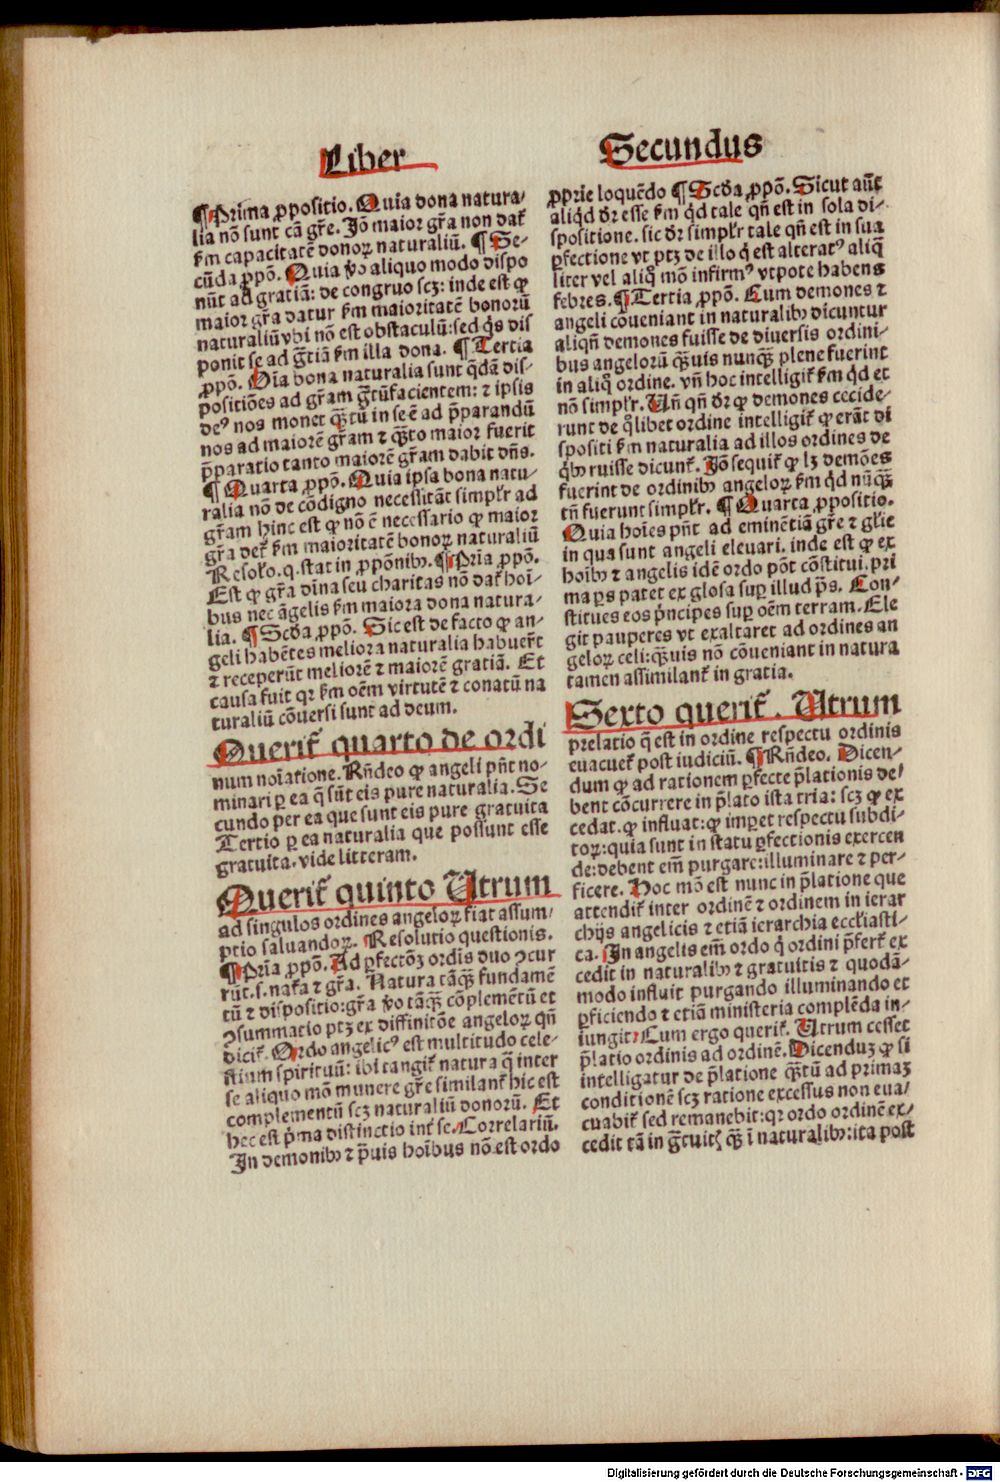 Liber
¶ Prima ꝓpositio. Quia dona natura-
lia nõ sunt cã gr̃e. Jõ maior gr̃a non dat᷑
ẜm capacitatẽ donoꝝ naturaliũ. ¶ Se-
cũda ꝓpõ. Quia ꝟo aliquo modo dispo
nũt ad gratiã: de congruo scꝫ: inde est ꝙ
maior gr̃a datur ẜm maioritatẽ bonorũ
naturaliũ vbi nõ est obstaculũ: sed q̇s dis
ponit se ad gr̃tiã ẜm illa dona. ¶ Tertia
ꝓpõ. Oĩa bona naturalia sunt q̃dã dis-
positiões ad gr̃am gr̃tũfacientem: ⁊ ipsis
deꝰ nos monet q̃ꝫtũ in se ẽ ad p̃parandũ
nos ad maiorẽ gr̃am ⁊ q̃ꝫto maior fuerit
p̃paratio tanto maiorẽ gr̃am dabit dñs.
¶ Quarta ꝓpõ. Quia ipsa bona natu-
ralia nõ de cõdigno necessitãt simplr̃ ad
gr̃am hinc est ꝙ nõ ẽ necessario ꝙ maior
gr̃a det᷑ ẜm maioritatẽ bonoꝝ naturaliũ
Resolo. q. stat in ꝓpõnibꝫ. ¶ Pria ꝓpõ.
Est ꝙ gr̃a diña seu charitas nõ dat᷑ hoĩ-
bus nec ãgelis ẜm maiora dona natura-
lia. ¶ Scd̃a ꝓpõ. Sic est de facto ꝙ an-
geli habẽtes meliora naturalia habuer̃t
⁊ receperũt meliorẽ ⁊ maiorẽ gratiã. Et
causa fuit qꝛ ẜm oẽm virtutẽ ⁊ conatũ na
turaliũ cõuersi sunt ad deum.
Querit᷑ quarto de ordi
num noĩatione. Rñdeo ꝙ angeli pñt no-
minari ꝑ ea q̃ sũt eis pure naturalia. Se
cundo per ea que sunt eis pure gratuita
Tertio ꝑ ea naturalia que possunt esse
gratuita. vide litteram.
Querit᷑ quinto Utrum
ad singulos ordines angeloꝝ fiat assum/
ptio saluandoꝝ. Resolutio questionis.
¶ Pria ꝓpõ. Ad ꝑfectõꝫ ordis duo ꝯcur
rũt. s. nat᷑a ⁊ gr̃a. Natura tãq̃ꝫ fundamẽ
tũ ⁊ dispositio: gr̃a ꝟo tãq̃ꝫ cõplemẽtũ et
ꝯsummatio ptꝫ ex diffinitõe angeloꝝ qñ
dicit᷑. Ordo angelicꝰ est multitudo cele-
stium spirituũ: ibi tangit᷑ natura q̃ inter
se aliquo mõ munere gr̃e similant᷑ hic est
complementũ scꝫ naturaliũ donorũ. Et
hec est p̃ma distinctio int᷑ se. Correlariũ.
In demonibꝫ ⁊ p̃uis hoĩbus nõ est ordo
Secundus
ꝓprie loquẽdo ¶ Scd̃a ꝓpõ. Sicut aũt
aliqd̃ dr̃ esse ẜm qd̃ tale qñ est in sola di-
spositione. sic dr̃ simplr̃ tale qñ est in sua
ꝑfectione vt ptꝫ de illo q̇ est alteratꝰ aliq̃
liter vel aliq̃ mõ infirmꝰ vtpote habens
febres. ¶ Tertia ꝓpõ. Cum demones ⁊
angeli cõueniant in naturalibꝫ dicuntur
aliqñ demones fuisse de diuersis ordini-
bus angelorũ q̃ꝫuis nunq̃ꝫ plene fuerint
in aliq̃ ordine. vñ hoc intelligit᷑ ẜm qd̃ et
nõ simplr̃. Uñ qñ dr̃ ꝙ demones cecide-
runt de q̃libet ordine intelligit᷑ ꝙ erãt di
spositi ẜm naturalia ad illos ordines de
q̇bꝫ ruisse dicunt᷑. Jõ sequit᷑ ꝙ lꝫ demões
fuerint de ordinibꝫ angeloꝝ ẜm qd̃ nũq̃ꝫ
tñ fuerunt simplr̃. ¶ Quarta ꝓpositio.
Quia hoĩes pñt ad eminẽtiã gr̃e ⁊ glr̃ie
in qua sunt angeli eleuari. inde est ꝙ ex
hoĩbꝫ ⁊ angelis idẽ ordo põt cõstitui. pri
ma ꝑs patet ex glosa suꝑ illud p̃s. Con-
stitues eos p̃ncipes suꝑ oẽm terram. Ele
git pauperes vt exaltaret ad ordines an
geloꝝ celi: q̃ꝫuis nõ cõueniant in natura
tamen assimilant᷑ in gratia.
Sexto querit᷑. Utrum
prelatio q̃ est in ordine respectu ordinis
euacuet᷑ post iudiciũ. ¶ Rñdeo. Dicen-
dum ꝙ ad rationem ꝑfecte p̃lationis de/
bent cõcurrere in p̃lato ista tria: scꝫ ꝙ ex
cedat. ꝙ influat: ꝙ imꝑet respectu subdi-
toꝝ: quia sunt in statu ꝑfectionis exercen
de: debent em̃ purgare: illuminare ⁊ per-
ficere. Hoc mõ est nunc in p̃latione que
attendit᷑ inter ordinẽ ⁊ ordinem in ierar
chijs angelicis ⁊ etiã ierarchia eccl̃iasti-
ca. In angelis em̃ ordo q̇ ordini p̃fert᷑ ex
cedit in naturalibꝫ ⁊ gratuitis ⁊ quodã-
modo influit purgando illuminando et
ꝑficiendo ⁊ etiã ministeria complẽda in-
iungit. Cum ergo querit᷑. Utrum cesset
p̃latio ordinis ad ordinẽ. Dicenduꝫ ꝙ si
intelligatur de p̃latione q̃ꝫtũ ad primaꝫ
conditionẽ scꝫ ratione excessus non eua/
cuabit᷑ sed remanebit: qꝛ ordo ordinẽ ex/
cedit tã in gr̃tuitꝭ q̃ꝫ ĩ naturalibꝫ: ita post
Digitalisierung gefördert durch die Deutsche Forschungsgemeinschaft - DFG